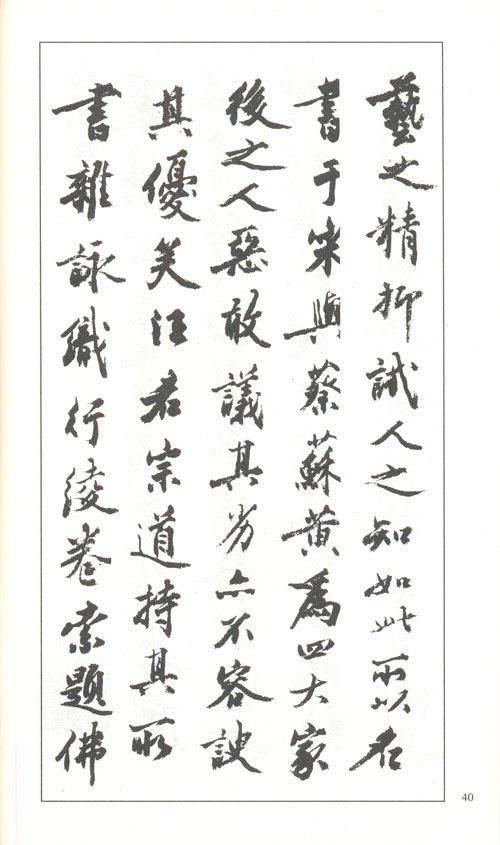 藝之精抑誠人之知如此所以名
書于宋與蔡蘇黃為四大家
後之人惡敢議其劣亦不容諛
其優美汪君宗道持其所
書雜詠織行綾卷索題佛
40